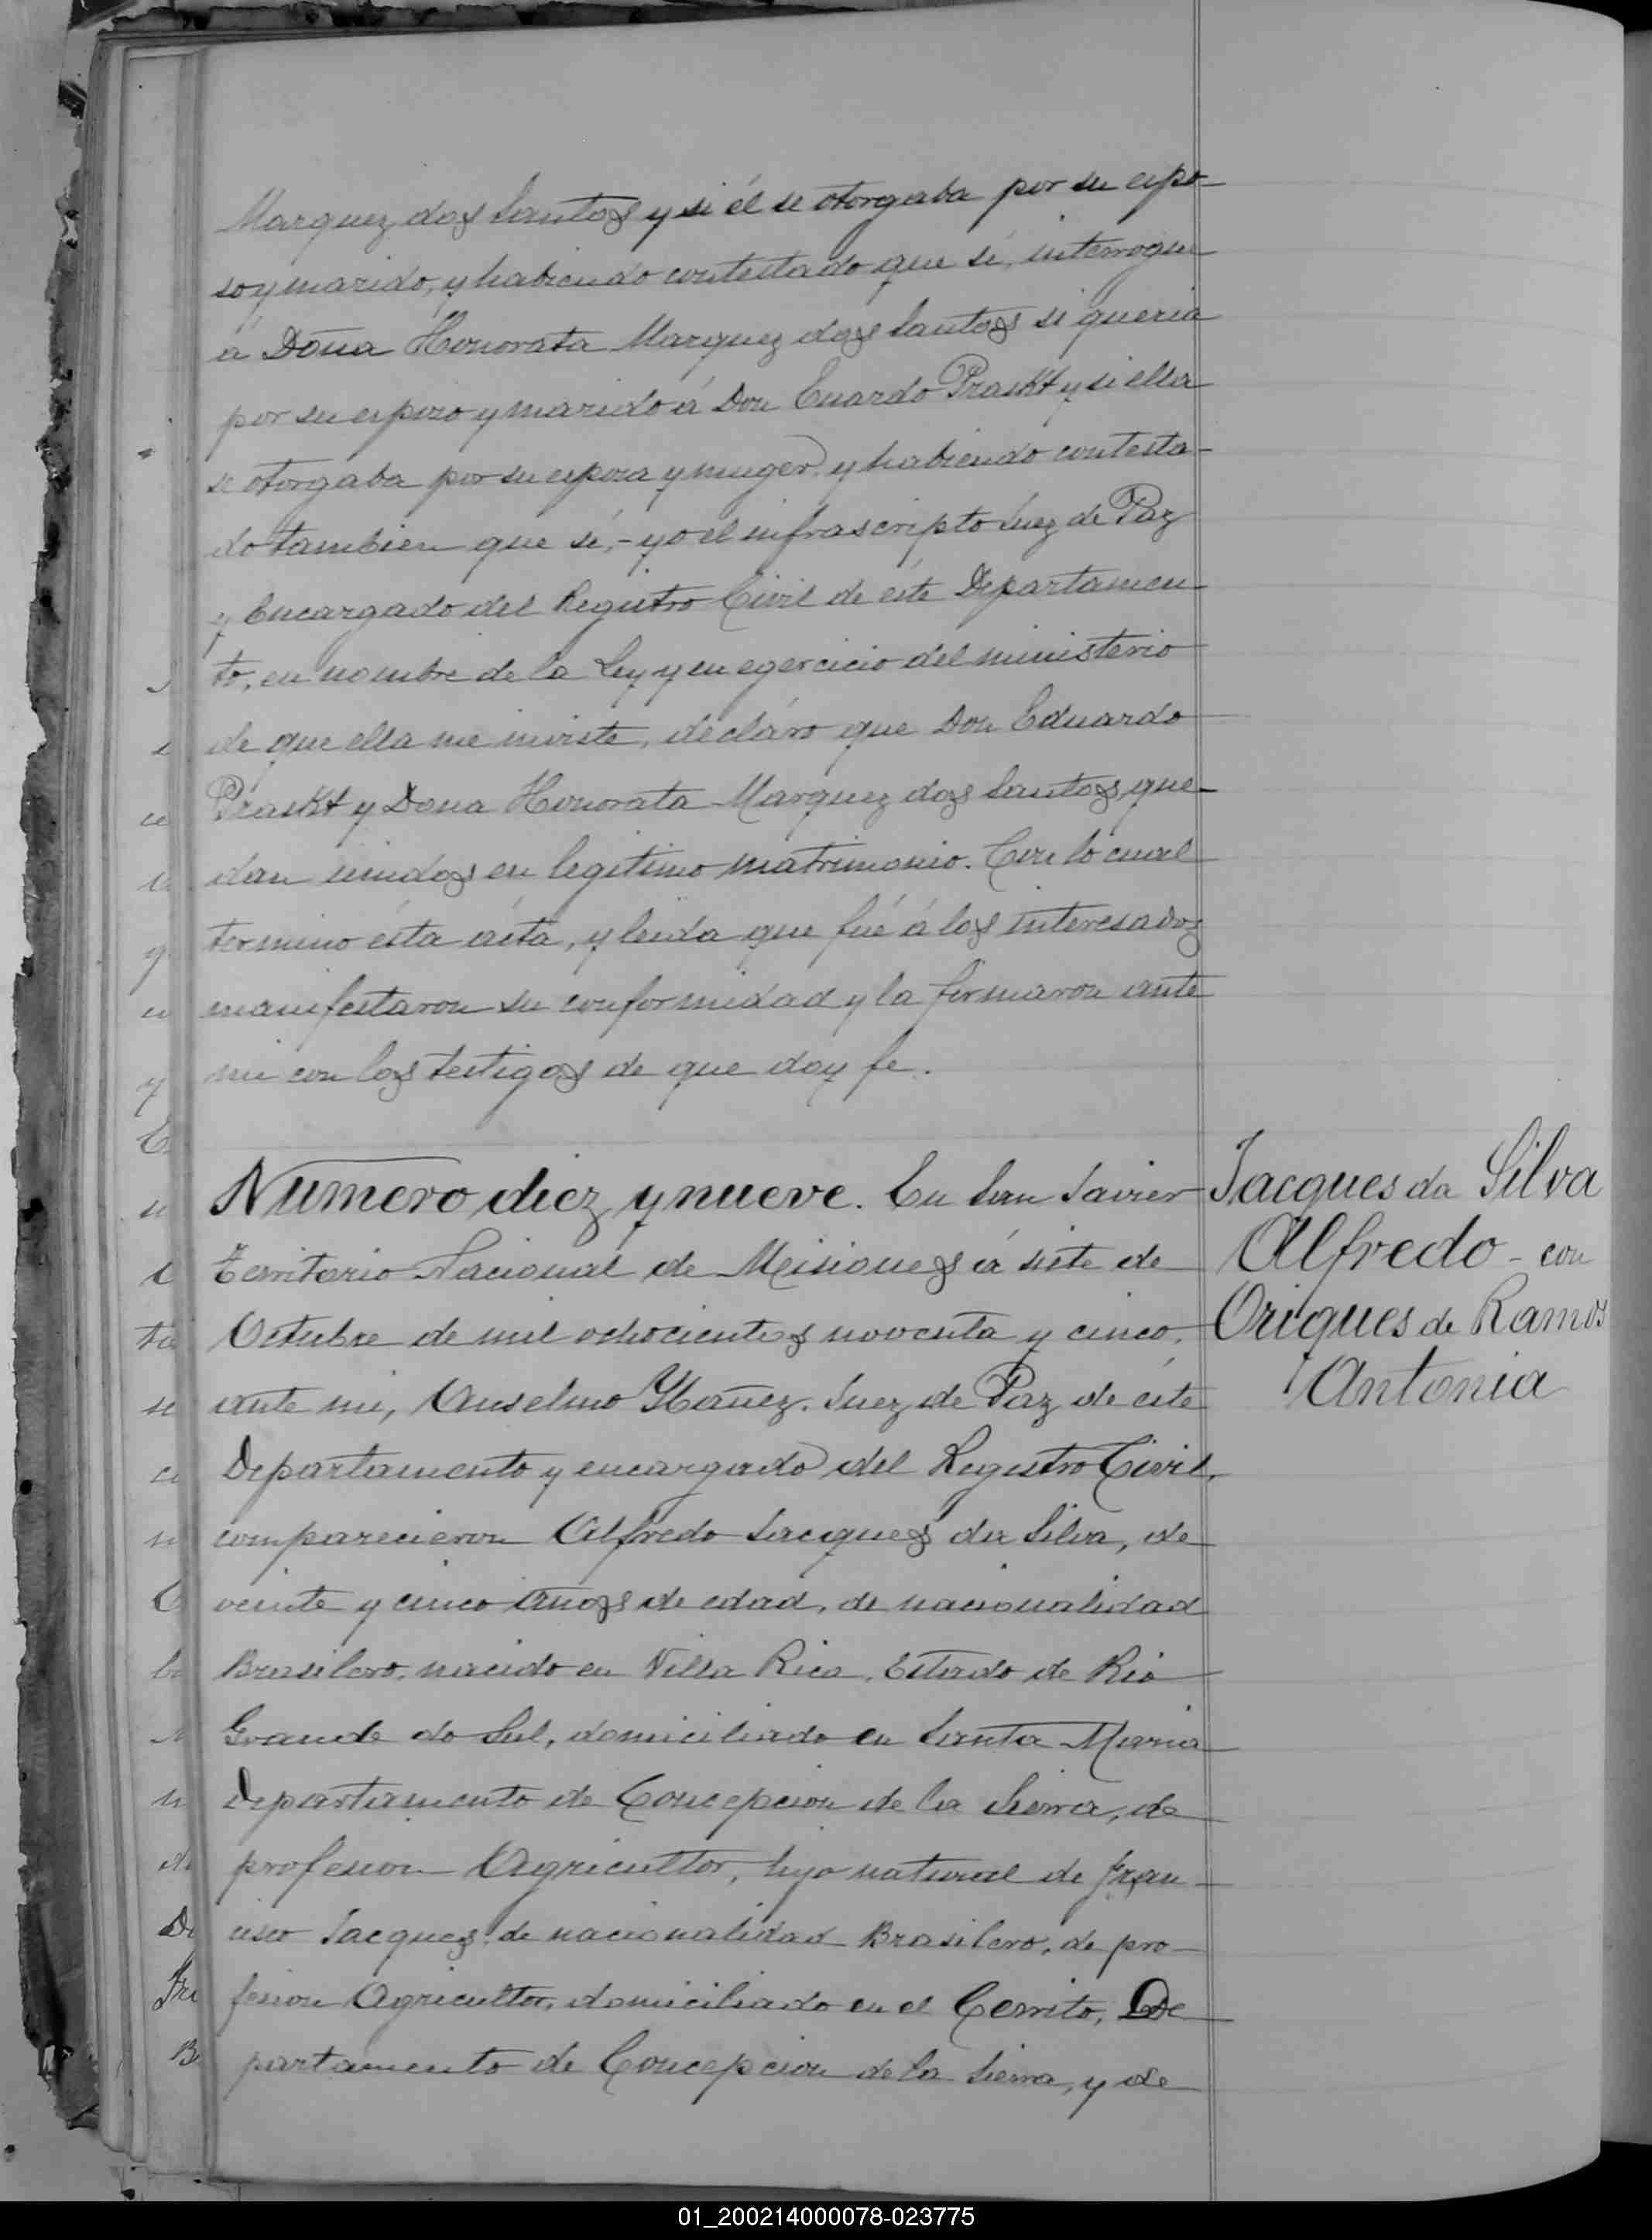 Marquez dos Santos y si él se otorgaba por su espo-
so y marido, y habiendo contestado que sí, interrogue
á Doña Honorata Marquez dos Santos si queria
por su esposo y marido á Don Euardo Praskt y si ella
se otorgaba por su esposa y muger, y habiendo contesta-
do tambien que sí,- yo el infrascripto Juez de Paz
y Encargado del Registro Civil de éste Departamen-
to, en nombre de la Ley y en egercicio del ministerio
de que ella me inviste, decláro que Don Eduardo
Praskt y Dona Honorata Marquez dos Santos, que-
dan unidos en legitimo matrimonio. Con lo cual
termino ésta acta, y leida que fué á los interesados
manifestaron su conformidad y la firmaron ante
mi con los testigos de que doy fe.
Numero diez y nueve. En San Javier
Territorio Nacional de Misiones á siete de
Octubre de mil ochocientos noventa y cinco,
ante mi, Anselmo Ybañez. Juez de Paz de éste
Departamento y encargado del Registro Civil,
comparecieron Alfredo Jacques da Silva, de
veinte y cinco años de edad, de nacionalidad
Brasilero, nacido en Villa Rica, Estado de Rio
Grande do Sul, domiciliado en Santa Maria
Departamento de Concepcion de la Sierra, de
profesion Agricultor, hijo natural de Fran-
cisco Jacques de nacionalidad Brasilero, de pro-
fesion Agricultor, domiciliado en el Cerrito, De
partamento de Concepcion de la Sierra, y de
Jacques da Silva
Alfredo - con
Origues de Ramos
Antonia
01_200214000078-023775